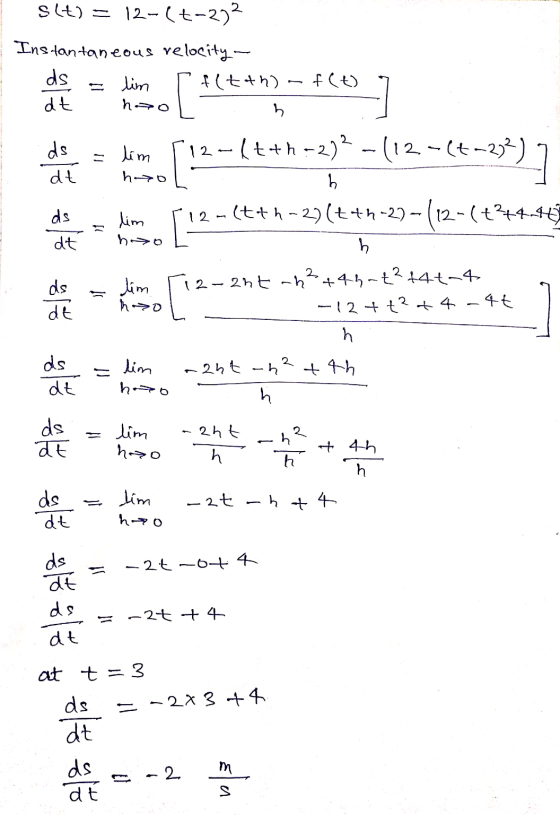 s(t) = 12-(t-2)²
Instantaneous velocity—
ds/dt = lim h→0 [ f(t+h) - f(t) / h ]
ds/dt = lim h→0 [ 12-(t+h-2)² - (12-(t-2)²) / h ]
ds/dt = lim h→0 [ 12-(t+h-2)(t+h-2)-(12-(t²+4-4t) / h
ds/dt = lim h→0 [ 12-2ht-h²+4h-t²+4t-4 -12+t²+4-4t / h ]
ds/dt = lim h→0 -2ht-h²+4h / h
ds/dt = lim h→0 -2ht/h - h²/h + 4h/h
ds/dt = lim h→0 -2t-h+4
ds/dt = -2t-0+4
ds/dt = -2t+4
at t=3
ds/dt = -2×3+4
ds/dt = -2 m/s